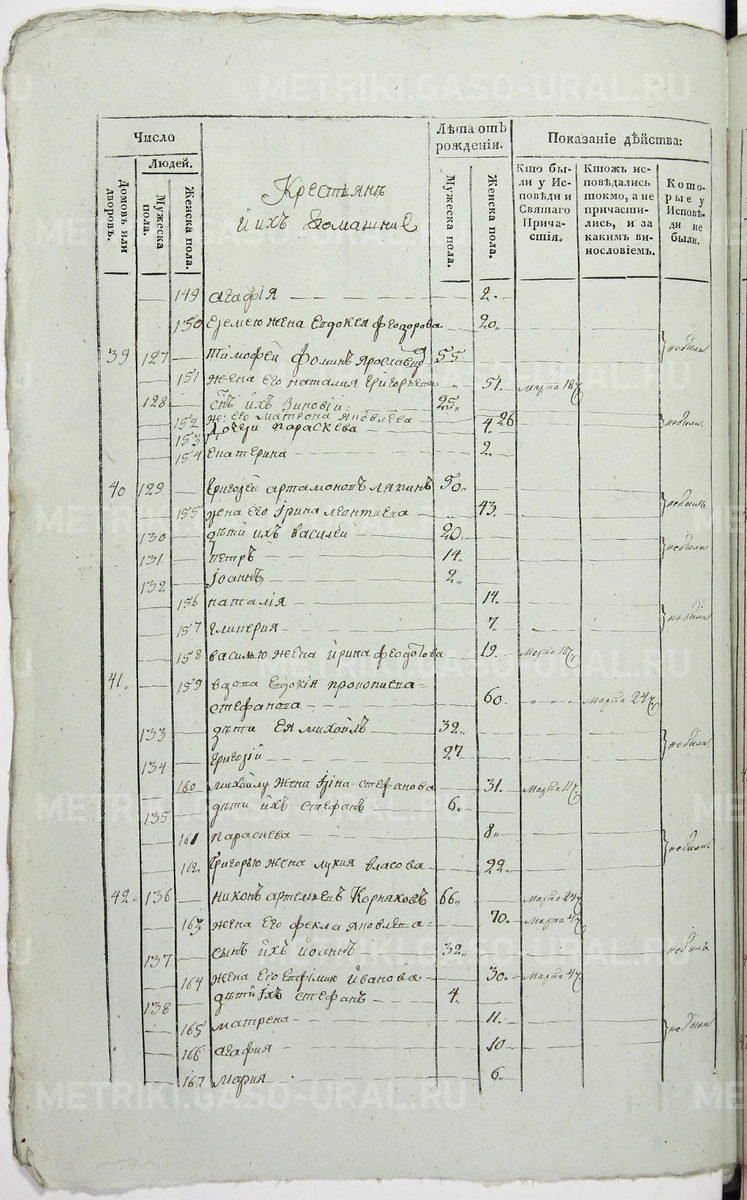 METRIKI.GASO-URAL.RU
Число
Людей.
Домовъ или дворовъ.
Мужеска пола.
Женска пола.
Крестьянъ
и ихъ домашние
Лѣта отъ рожденія.
Мужеска пола.
Женска пола.
Показаніе дѣйства:
Кто были у Исповѣди и Святаго Причастія.
Ктожъ исповѣдались токмо, а не причастились, и за какимъ винословіемъ.
Которые у Исповѣди не были.
149 Агафія 2.
150 Еремею жена Евдокея Феодорова 20.
39 127 Тимофей Фоминъ 55 небыли
151 жена Его Наталия Григорьева 51. Марта 18
128 снъ ихъ Зиновій 25.
152 же: Его Матрона Яковлева 26 небыли
153 Дочери Параскева 4.
154 Екатерина 2.
40 129 Григорей Артамоновъ Ляпинъ 50. небыли
155 жена Его Ірина Леонтиева 43.
130 дѣти ихъ Василей 20. небыли
131 Петръ 14.
132 Іоаннъ 2.
156 Наталія 14. небыли
157 Гликерия 7.
158 Василью жена Ирина Федотова 19. Марта 18
41. 159 вдова Евдокія Прокопиева
Стефанова 60. Марта 24
133 дѣти Ея Михаилъ 32. небыли
134 Григорій 27
160 Михаилу жена Стефанова 31. Марта 11
135 дѣти ихъ Стефанъ 6.
161 Параскева 8. небыли
162 Григорью жена Лукия Власова 22.
42. 136 Никонъ Артемиевъ Корняковъ 66. Марта 24
163 жена Его Фекла Яковлева 70. Марта 4
137 сынъ ихъ Иоаннъ 32. небылъ
164 жена Его Ефимия Иванова 30. Марта 4
138 дѣти ихъ Стефанъ 4.
165 Матрена 11. небыли
166 Агафия 10
167 Мария 6.